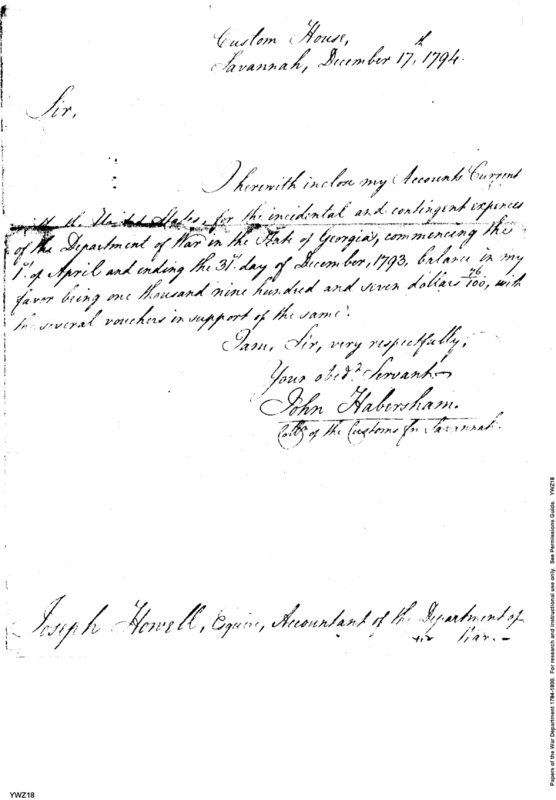 Custom House,
Savannah, December 17,th 1794.
Sir,
I herewith inclose my Accounts Current
with the United States, for the incidental and contingent expences
of the Department of War in the State of Georgia, commencing the
1st of April and ending the 31st day of December, 1793, balance in my
favor being one thousand nine hundred and seven dollars 76/100, with
the several vouchers in support of the same.
I am, Sir, very respectfully,
Your obedt Servant
John Habersham.
Collr of the Customs for Savannah.
Joseph Howell, Esquire, Accountant of the Department of
War. -
Papers of the War Department 1784-1800. For research and instructional use only. See Permissions Guide. YWZ18
YWZ18